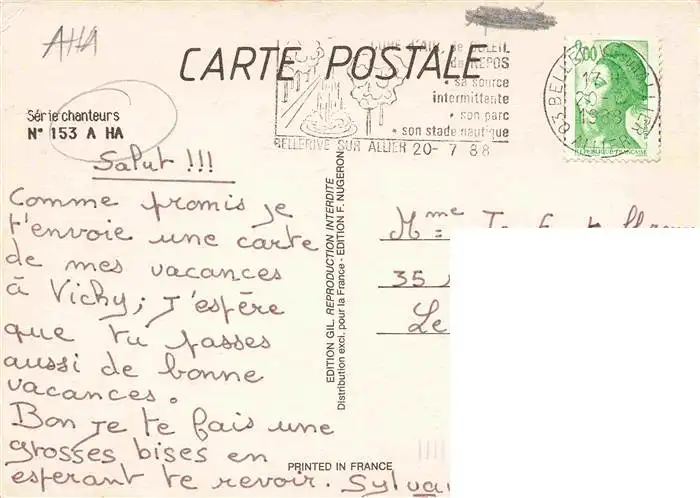 AHA
CARTE POSTALE
Série chanteurs
N° 153 A HA
CURE D'AIR, de SOLEIL
de REPOS
• sa source
intermittente
• son parc
• son stade nautique
BELLERIVE SUR ALLIER 20- 7 88
2,00
REPUBLIQUE FRANÇAISE
Salut !!!
Comme promis je
t'envoie une carte
de mes vacances
à Vichy; j'espère
que tu passes
aussi de bonne
vacances.
Bon je te fais une
grosses bises en
esperant te revoir.
EDITION GIL. REPRODUCTION INTERDITE
Distribution excl. pour la France - EDITION F. NUGERON
Mme
35
Le
PRINTED IN FRANCE